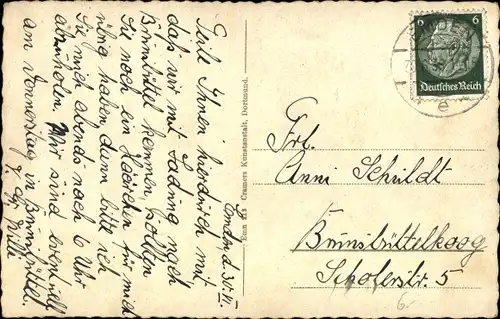 Emden, d. 30. VI.
Teile Ihnen hierdurch mit
das wir mit Ladung nach
Brunsbüttel kommen, sollten
Sie noch ein Körbchen für mich
übrig haben dann bitte ich
Sie mich abends nach 6 Uhr
abzuholen. Wir sind eventuell
am Donnerstag in Brunsbüttel.
Cramers Kunstanstalt, Dortmund.
6 6
Deutsches Reich
Frl.
Anni Schuldt
Brunsbüttelkoog
Schoferstr. 5
6.-